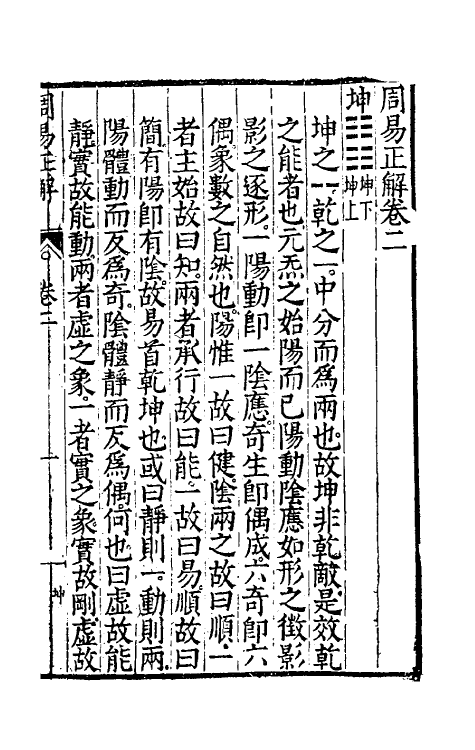 周易正解卷二
坤 ䷁ 坤下坤上
坤之一乾之一中分而為兩也故坤非乾敵是效乾
之能者也元炁之始陽而已陽動陰應如形之徵影
影之逐形一陽動即一陰應奇生即偶成六奇即六
偶象數之自然也陽惟一故曰健陰兩之故曰順一
者主始故曰知兩者承行故曰能一故曰易順故曰
簡有陽即有陰故易首乾坤也或曰靜則一動則兩
陽體動而反為奇陰體靜而反為偶何也曰虛故能
靜實故能動兩者虛之象一者實之象實故剛虛故
周易正解
卷二
一
坤